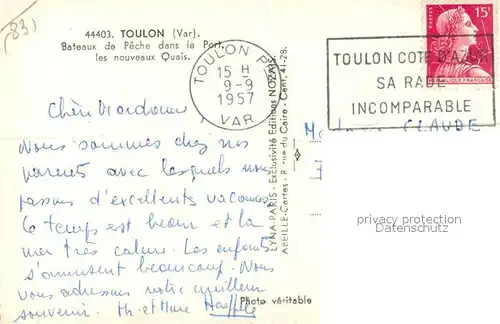 (83)
44403. TOULON (Var).
Bateaux de Pêche dans le Port,
les nouveaux Quais.
TOULON PL
15 H
9-9
1957
VAR
POSTES
15F
REPUBLIQUE FRANÇAISE
TOULON COTE D'AZUR
SA RADE
INCOMPARABLE
CLAUDE
Chère
Nous sommes chez nos
parents avec lesquels nous
passons d'excellents vacances.
Le temps est beau et la
mer très calme. Les enfants
s'amusent beaucoup. Nous
vous adressons notre meilleur
souvenir. Th. et Marc
LYNA-PARIS - Exclusivité Editions NOZAIS.
ABEILLE-Cartes - 8, rue du Caire - Cent. 41-28.
Photo véritable
privacy protection
Datenschutz